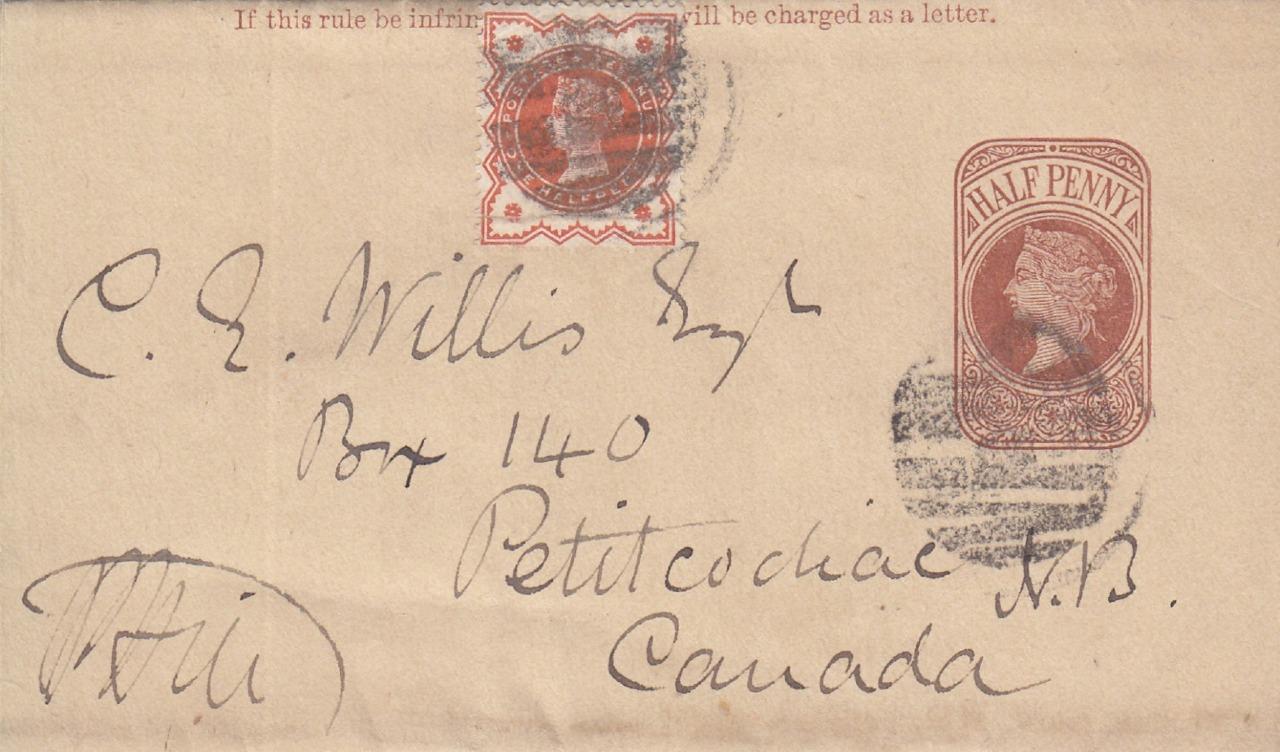 If this rule be infrin ill be charged as a letter.
POSTAGE & REVENUE
ONE HALFPENNY
HALF PENNY
C. E. Willis Esqr
Box 140
Petitcodiac N.B.
Canada